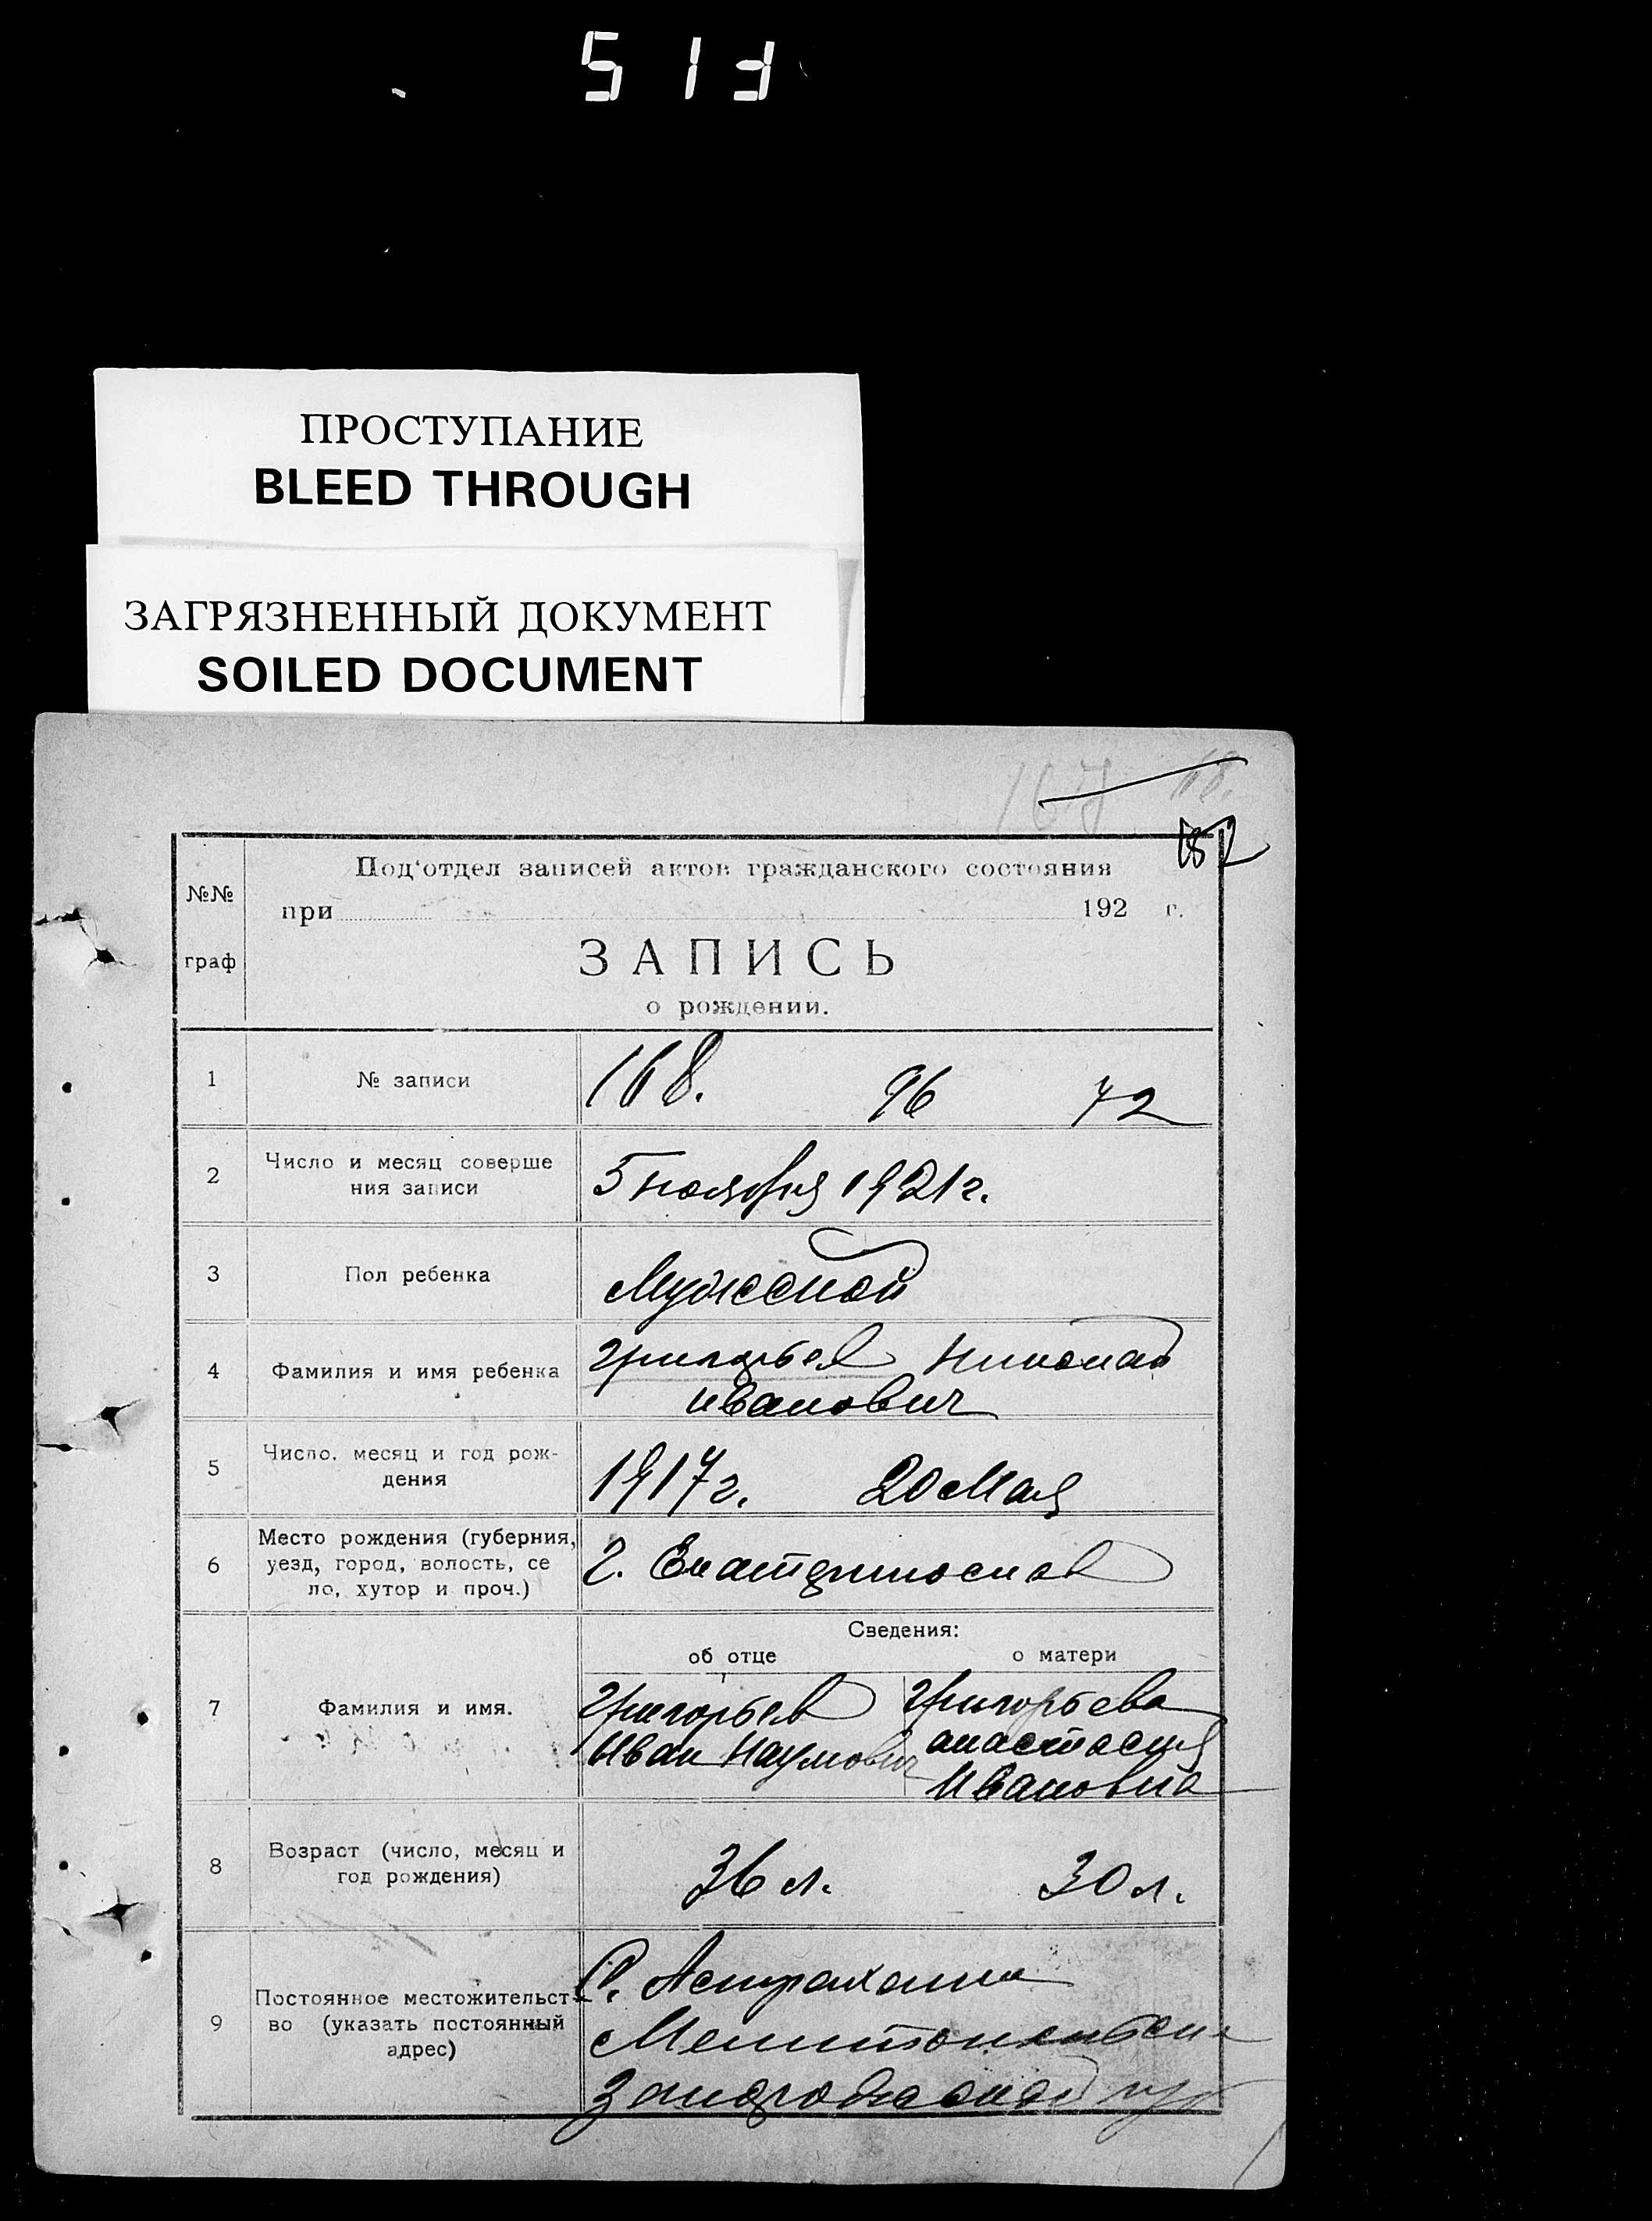 513
ПРОСТУПАНИЕ
BLEED THROUGH
ЗАГРЯЗНЕННЫЙ ДОКУМЕНТ
SOILED DOCUMENT
167 168.
182
№№ граф
Под'отдел записей актов гражданского состояния
при 192 г.
ЗАПИСЬ
о рождении.
1 № записи 168. 96 72
2 Число и месяц соверше
ния записи
5 ноября 1921 г.
3 Пол ребенка Мужской
4 Фамилия и имя ребенка Григорьев Николай
Иванович
5 Число, месяц и год рож-
дения
1917 г. 20 Мая
6 Место рождения (губерния,
уезд, город, волость, се
ло, хутор и проч.)
г. Екатеринослав
Сведения:
об отце о матери
7 Фамилия и имя. Григорьев Григорьева
Иван Наумович Анастасия
Ивановна
8 Возраст (число, месяц и
год рождения)
36 л. 30 л.
9 Постоянное местожительст-
во (указать постоянный
адрес)
С. Астраханка
Мелитопольск.
Запорожской губ